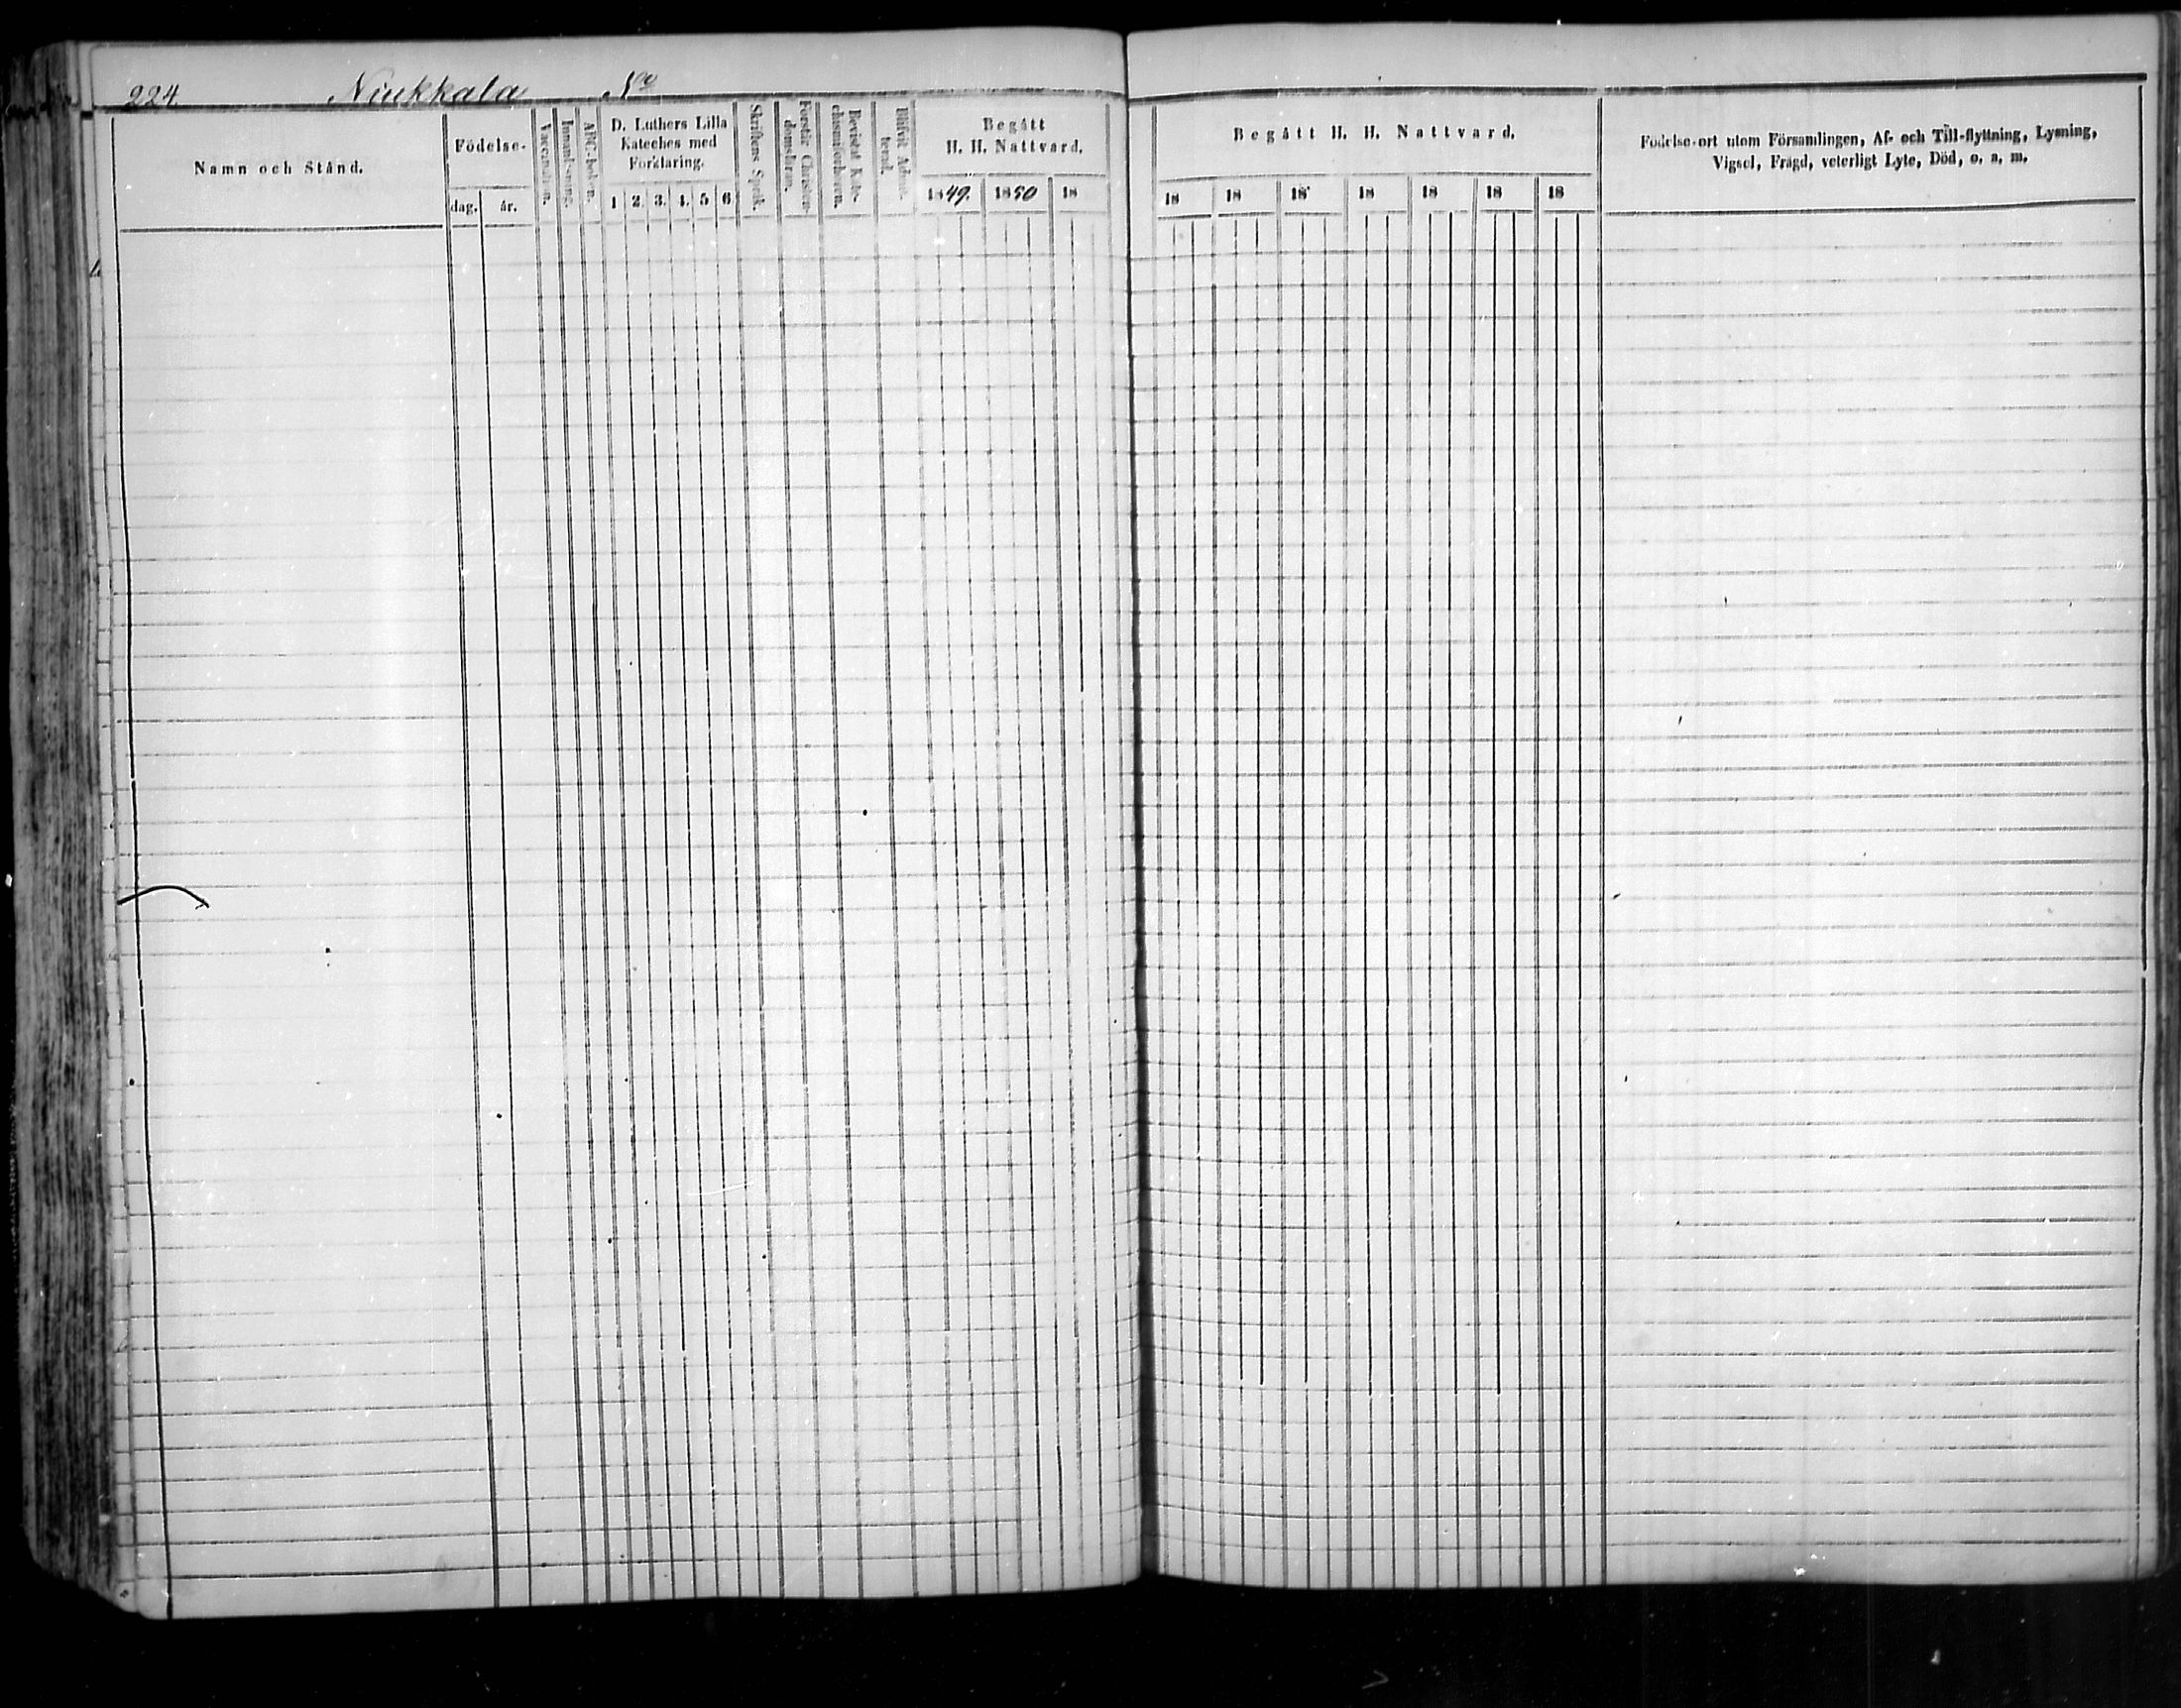 224 Niukkala No
Namn och Stånd.
Födelse-
dag. år.
Vaccination.
Innanläsning.
ABC-boken.
D. Luthers Lilla
Kateches med
Förklaring.
1 2. 3. 4. 5 6
Skriftens Språk.
Förstår Christen-
domsläran.
Bevistat Kate-
chismiförhören.
Blifvit Admit-
terad.
Begått
H. H. Nattvard.
1849. 1850 18
Begått H. H. Nattvard.
18 18 18 18 18 18 18
Födelse-ort utom Församlingen, Af- och Till-flyttning, Lysning,
Vigsel, Frägd, veterligt Lyte, Död, o. s. m.